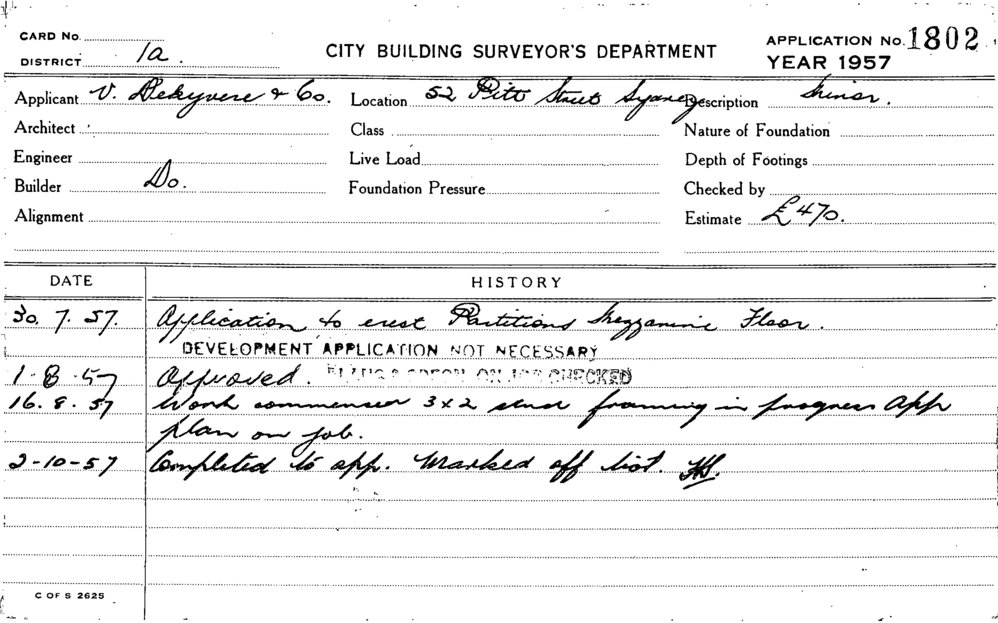 CARD No.
DISTRICT 1a.
CITY BUILDING SURVEYOR'S DEPARTMENT
APPLICATION No. 1802
YEAR 1957
Applicant V. Dekyvere & Co. Location 52 Pitt Street Sydney Description Minor.
Architect Class Nature of Foundation
Engineer Live Load Depth of Footings
Builder Do. Foundation Pressure Checked by
Alignment Estimate £470.
DATE HISTORY
30. 7. 57. Application to erect Partitions Mezzanine Floor.
DEVELOPMENT APPLICATION NOT NECESSARY
1-8-57 Approved. PLANS & SPECN. ON JOB CHECKED
16. 8. 57 Work commenced 3x2 stud framing in progress App
plan on job.
2-10-57 Completed to app. Marked off list.
C OF S 2625